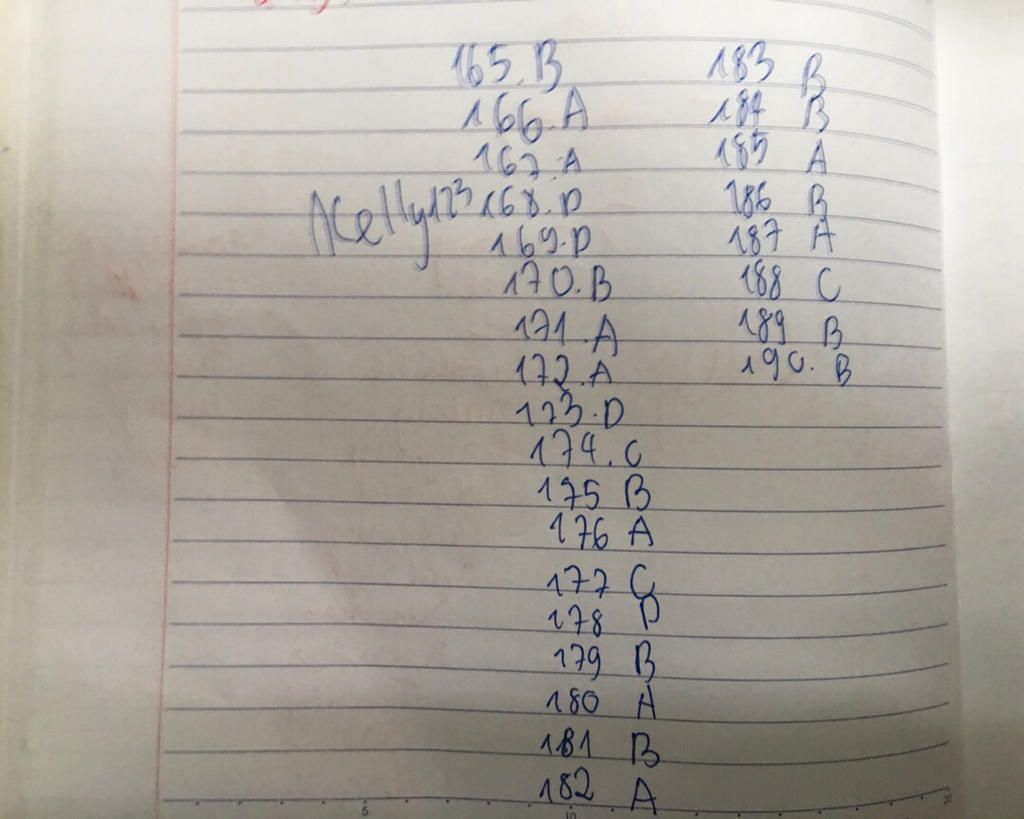 165. B
166. A
167. A
168. D
169. D
170. B
171. A
172. A
173. D
174. C
175 B
176 A
177 C
178 D
179 B
180 A
181 B
182 A
183 B
184 B
185 A
186 B
187 A
188 C
189 B
190. B
5
10